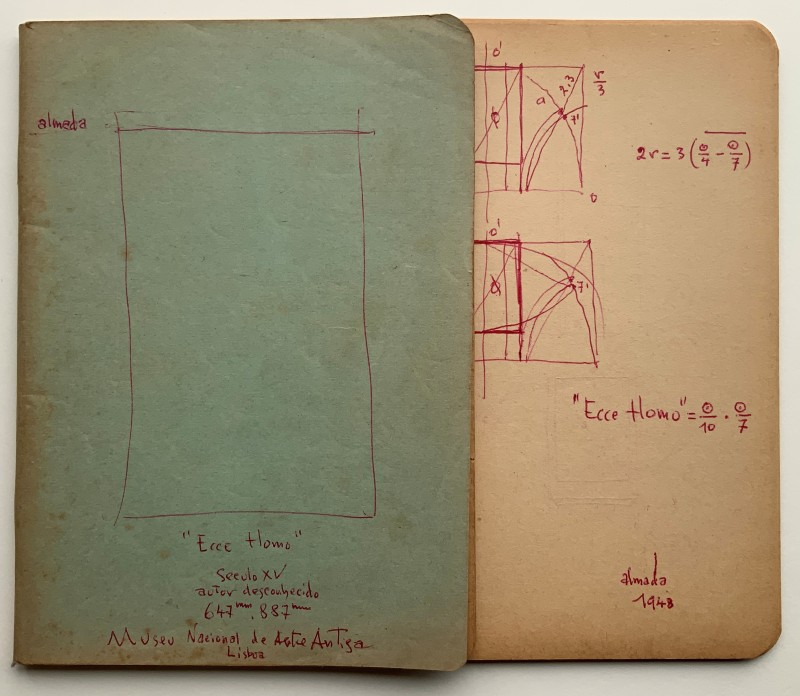 almada
"Ecce Homo"
Seculo XV
autor desconhecido
647mm . 887mm
Museu Nacional de Arte Antiga
Lisboa
0'
r/3
2,3
a
φ
7'
0
2r = 3 (⊙/4 - ⊙/7)
0'
7'
"Ecce Homo" = ⊙/10 · ⊙/7
almada
1948